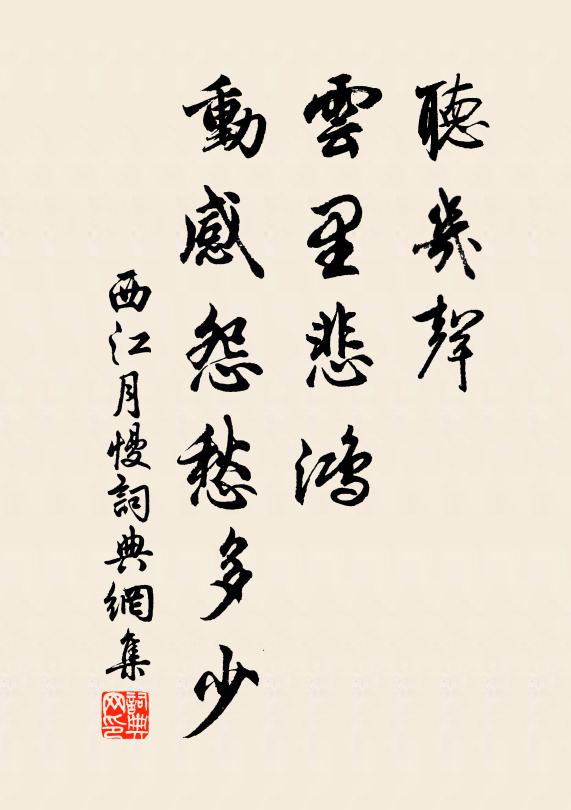 聽幾聲
雲里悲鴻
動感怨愁多少
西江月慢詞典網集
詞典
网印